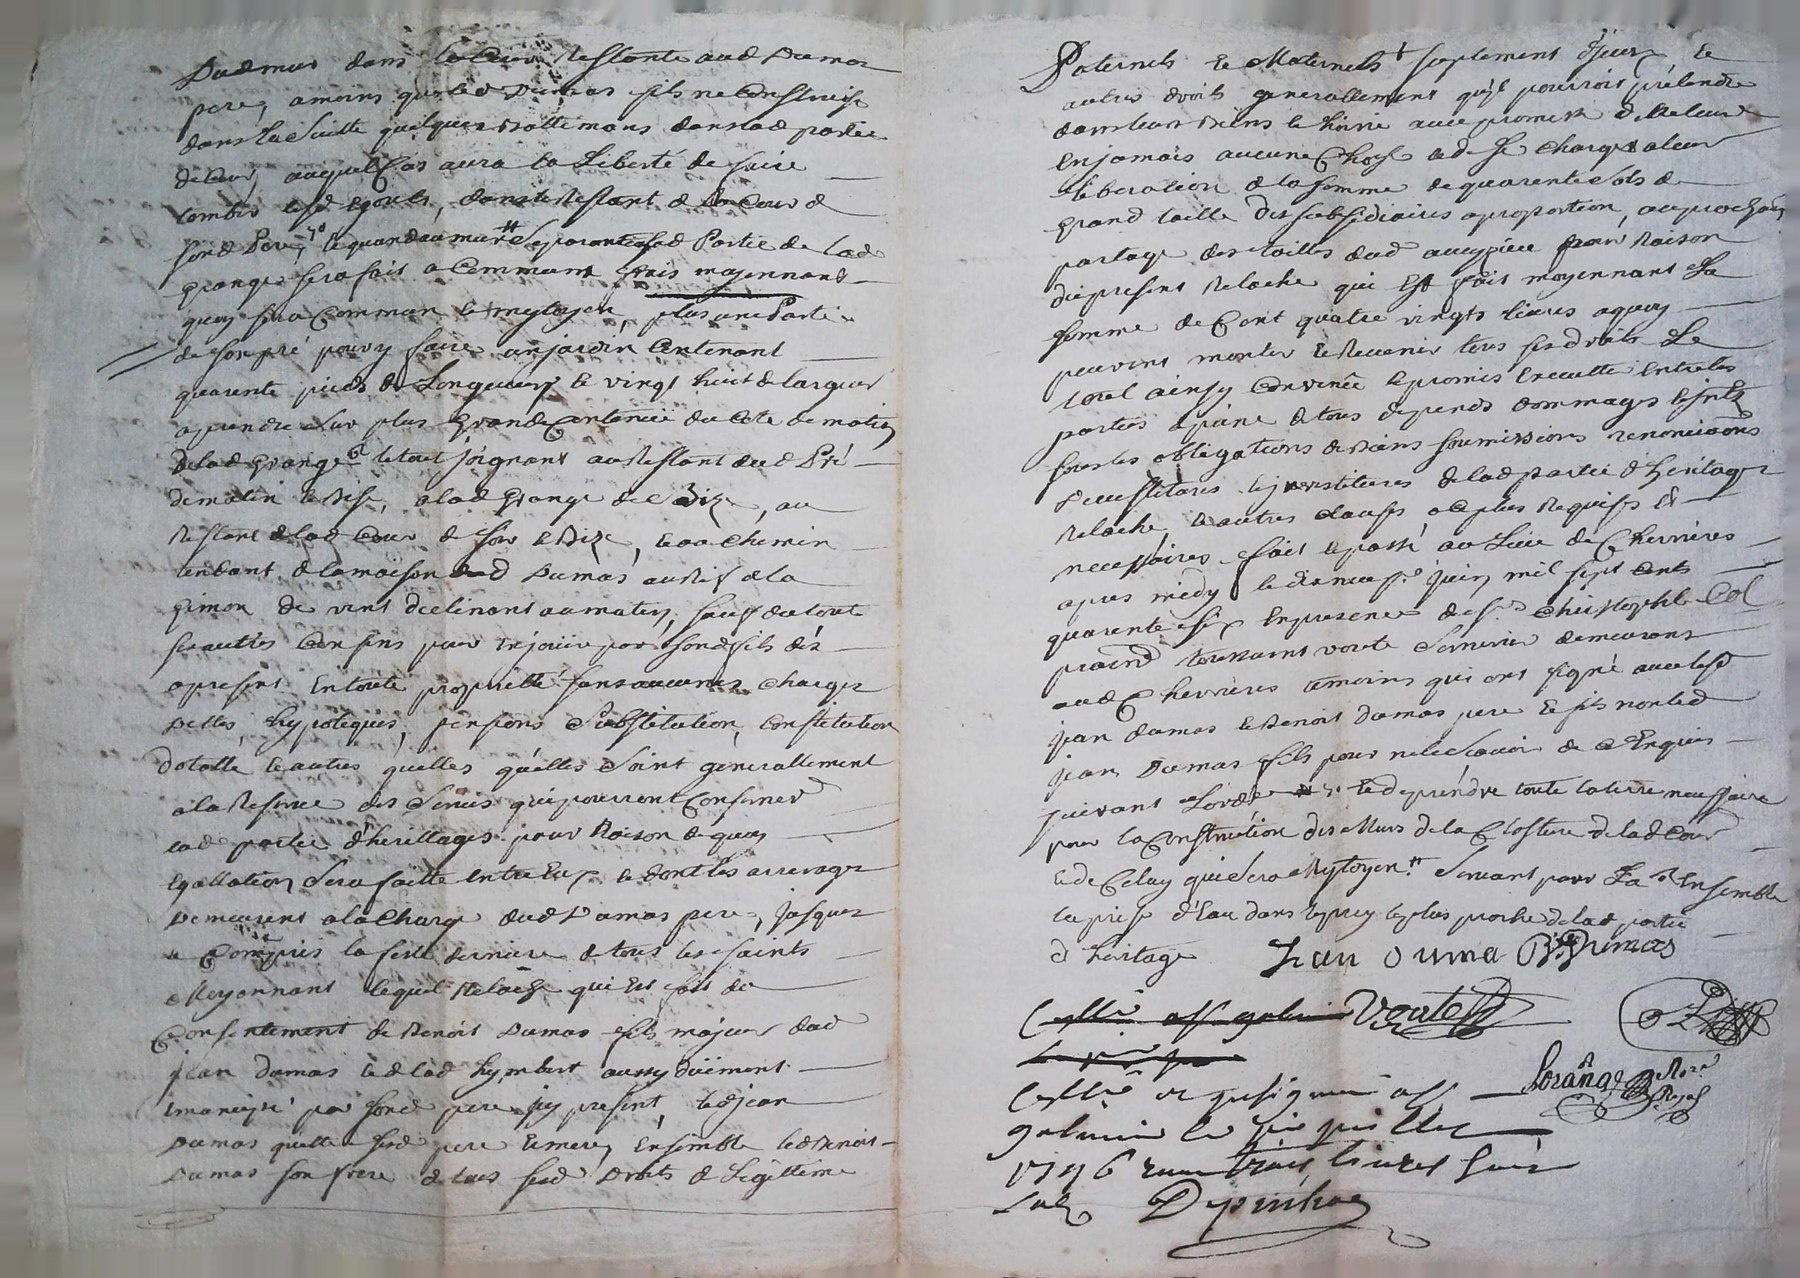 Dud mur dans la Cour Restante aud Dumas
pere, amoins que led Dumas fils ne Construise
dans la Suitte quelques battimans dans lad partie
de Cour, auquel Cas aura la Liberté de faire
tomber lesd Egouts, dans le Restant de la Cour de
sond Pere, le quand au mur Separant lad Partie de lad
grange sera fait a Communs frais moyennant
quoy sera Commun le mytoyen, plus une Partie
de son pré pour y faire un jardin Contenant
quarente pieds de Longueur le vingt huit de largeur
aprendre sur plus grande Contenüe du Cote de matin
de lad grange, le tout joignant au Restant dud Pré
de matin le Bise, a lad grange de Bize, au
Restant de lad Cour de soir le Bize, le au chemin
tendant de la maison dud Dumas au Rif de la
gimon de vent declinant au matin, sauf du tout
ses autres Confins pour En jouir par sond fils dès
apresent En toute propriette sans aucunes charges
Dettes, hypoteques, pensions Substitution, Constitution
dotalle le autres quelles quelles Soint generallement
a la Reserve des Servis qui pourront Conserner
lad partie d'herittages pour Raison de quoy
Egallation Sera faitte Entre Eux le dont les arrerages
Demeurent a la Charge dud Dumas pere, jusques
le Compris la feste derniere de tous les saints
Moyennant lequel Relache qui Est fait du
Consentement de Benoit Dumas fils majeur dud
jean Dumas le de lad hymbert aussy düement
Emancipé par sond pere icy present, led jean
Dumas quitte sesd pere le mere, Ensemble led Benoit
Dumas son frere de tous sesd Droits de Legittime
Paternels le Maternels suplement d'jceux le
autres droits generallement qu'jl pourroit prétendre
dans leurs biens le hoirie avec promesse
En jamais aucune Chose le de se charger a leur
liberation de la somme de quarente Sols de
grand taille des subsidiaires a proportion, au prochain
partage des tailles dud pour Raison
du present Relache qui Est fait moyennant la
somme de Cent quatre vingts livres aquoy
peuvent monter le Revenir tous ses droits Le
tout ainsy Convenü le promis Executter Entre les
parties a peine de tous depends dommages
sous les obligations de biens soumissions renonciations
de lad partie d'heritages
Relaché, le autres clauses a ce plus Requises le
necessaires. fait le passé au Lieu de Chevrieres
apres midy le dixneufe juin mil sept cents
quarente six En presence de Sr Christophle Col
praticien toussaint voute Serrurier demeurant
aud Chevrieres temoins qui ont signé avec lesd
jean dumas le Benoit Dumas pere le fils non led
jean Dumas fils pour ne le Scavoir de ce Enquis
suivant Lorde le de prendre toute la terre necessaire
pour la Construction des Murs de la Closture de lad Cour
le de Celuy qui sera Mytoyen Servant pour Ensemble
la prise d'Eau dans le plus proche de lad partie
d'heritage
Jean duma B Dumas
Voute
Lorange
galmier le juin
1746 recu trois livres
sols Depinhac